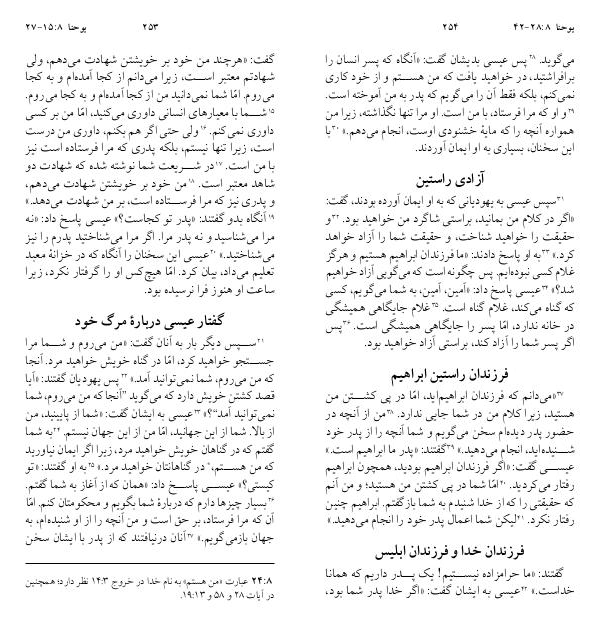 یوحنا ۸:‏۱۵-۲۷ ۲۵۳
گفت: «هرچند من خود بر خویشتن شهادت می‌دهم، ولی
شهادتم معتبر است، زیرا می‌دانم از کجا آمده‌ام و به کجا
می‌روم. امّا شما نمی‌دانید من از کجا آمده‌ام و به کجا می‌روم.
۱۵شما با معیارهای انسانی داوری می‌کنید، امّا من بر کسی
داوری نمی‌کنم. ۱۶ولی حتی اگر هم بکنم، داوری من درست
است، زیرا تنها نیستم، بلکه پدری که مرا فرستاده است نیز
با من است. ۱۷در شریعت شما نوشته شده که شهادت دو
شاهد معتبر است. ۱۸من خود بر خویشتن شهادت می‌دهم،
و پدری نیز که مرا فرستاده است، بر من شهادت می‌دهد.»
۱۹آنگاه بدو گفتند: «پدر تو کجاست؟» عیسی پاسخ داد: «نه
مرا می‌شناسید و نه پدر مرا. اگر مرا می‌شناختید پدرم را نیز
می‌شناختید.» ۲۰عیسی این سخنان را آنگاه که در خزانهٔ معبد
تعلیم می‌داد، بیان کرد. امّا هیچ‌کس او را گرفتار نکرد، زیرا
ساعت او هنوز فرا نرسیده بود.
گفتار عیسی دربارهٔ مرگ خود
۲۱سپس دیگر بار به آنان گفت: «من می‌روم و شما مرا
جستجو خواهید کرد، امّا در گناه خویش خواهید مرد. آنجا
که من می‌روم، شما نمی‌توانید آمد.» ۲۲پس یهودیان گفتند: «آیا
قصد کشتن خویش دارد که می‌گوید ”آنجا که من می‌روم، شما
نمی‌توانید آمد“؟» ۲۳عیسی به ایشان گفت: «شما از پایینید، من
از بالا. شما از این جهانید، امّا من از این جهان نیستم. ۲۴به شما
گفتم که در گناهان خویش خواهید مرد، زیرا اگر ایمان نیاورید
که من هستم،* در گناهانتان خواهید مرد.» ۲۵به او گفتند: «تو
کیستی؟» عیسی پاسخ داد: «همان که از آغاز به شما گفتم.
۲۶بسیار چیزها دارم که دربارهٔ شما بگویم و محکومتان کنم. امّا
آن که مرا فرستاد، بر حق است و من آنچه را از او شنیده‌ام، به
جهان بازمی‌گویم.» ۲۷آنان درنیافتند که از پدر با ایشان سخن
۲۴:۸ عبارت «من هستم» به نام خدا در خروج ۱۴:۳ نظر دارد؛ همچنین
در آیات ۲۸ و ۵۸ و ۱۹:۱۳.
۲۵۴ یوحنا ۸:‏۲۸-۴۲
می‌گوید. ۲۸پس عیسی بدیشان گفت: «آنگاه که پسر انسان را
برافراشتید، در خواهید یافت که من هستم و از خود کاری
نمی‌کنم، بلکه فقط آن را می‌گویم که پدر به من آموخته است.
۲۹و او که مرا فرستاد، با من است. او مرا تنها نگذاشته، زیرا من
همواره آنچه را که مایهٔ خشنودی اوست، انجام می‌دهم.» ۳۰با
این سخنان، بسیاری به او ایمان آوردند.
آزادی راستین
۳۱سپس عیسی به یهودیانی که به او ایمان آورده بودند، گفت:
«اگر در کلام من بمانید، براستی شاگرد من خواهید بود. ۳۲و
حقیقت را خواهید شناخت، و حقیقت شما را آزاد خواهد
کرد.» ۳۳به او پاسخ دادند: «ما فرزندان ابراهیم هستیم و هرگز
غلام کسی نبوده‌ایم. پس چگونه است که می‌گویی آزاد خواهیم
شد؟» ۳۴عیسی پاسخ داد: «آمین، آمین، به شما می‌گویم، کسی
که گناه می‌کند، غلام گناه است. ۳۵غلام جایگاهی همیشگی
در خانه ندارد، امّا پسر را جایگاهی همیشگی است. ۳۶پس
اگر پسر شما را آزاد کند، براستی آزاد خواهید بود.
فرزندان راستین ابراهیم
۳۷«می‌دانم که فرزندان ابراهیم‌اید، امّا در پی کشتن من
هستید، زیرا کلام من در شما جایی ندارد. ۳۸من از آنچه در
حضور پدر دیده‌ام سخن می‌گویم و شما آنچه را از پدر خود
شنیده‌اید، انجام می‌دهید.» ۳۹گفتند: «پدر ما ابراهیم است.»
عیسی گفت: «اگر فرزندان ابراهیم بودید، همچون ابراهیم
رفتار می‌کردید. ۴۰امّا شما در پی کشتن من هستید؛ و من آنم
که حقیقتی را که از خدا شنیدم به شما بازگفتم. ابراهیم چنین
رفتار نکرد. ۴۱لیکن شما اعمال پدر خود را انجام می‌دهید.»
فرزندان خدا و فرزندان ابلیس
گفتند: «ما حرامزاده نیستیم! یک پدر داریم که همانا
خداست.» ۴۲عیسی به ایشان گفت: «اگر خدا پدر شما بود،